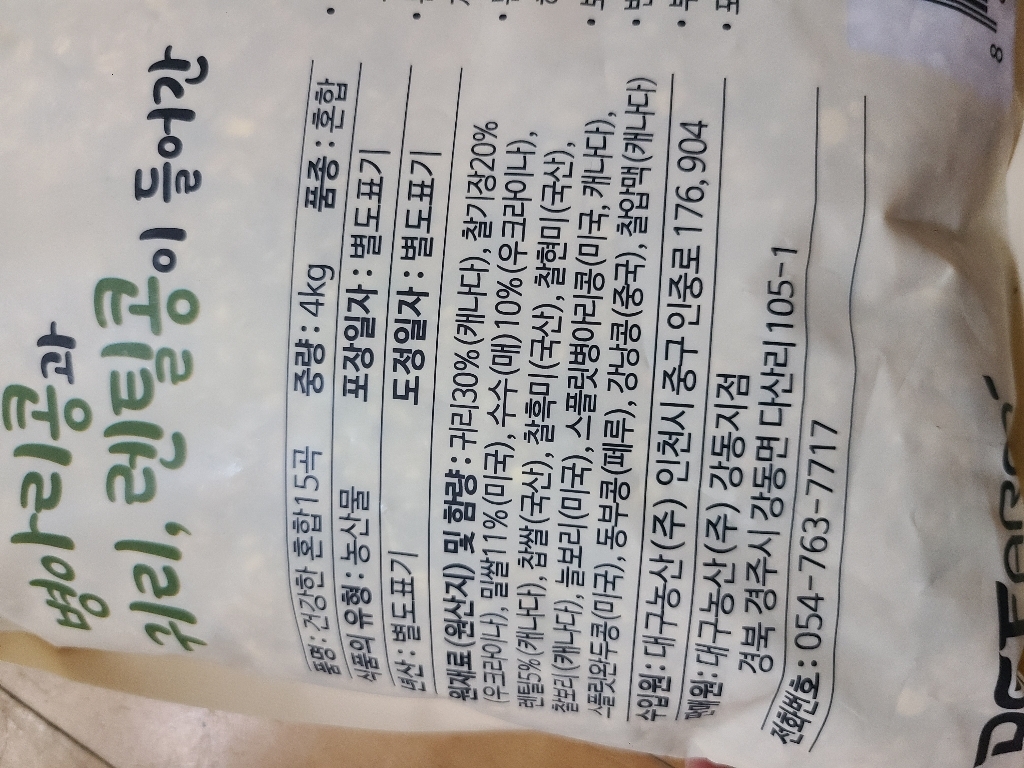 병아리콩과
귀리, 렌틸콩이 들어간
품명 : 건강한 혼합 15곡 중량 : 4kg 품종 : 혼합
식품의 유형 : 농산물 포장일자 : 별도표기
년산 : 별도표기 도정일자 : 별도표기
원재료(원산지) 및 함량 : 귀리30%(캐나다), 찰기장20%
(우크라이나), 밀쌀11%(미국), 수수(메)10%(우크라이나),
렌틸5%(캐나다), 찹쌀(국산), 찰흑미(국산), 찰현미(국산),
찰보리(캐나다), 늘보리(미국), 스플릿병아리콩(미국, 캐나다),
스플릿완두콩(미국), 동부콩(페루), 강낭콩(중국), 찰압맥(캐나다)
수입원 : 대구농산(주) 인천시 중구 인중로 176, 904
판매원 : 대구농산(주) 강동지점
경북 경주시 강동면 다산리 105-1
전화번호 : 054-763-7717
8